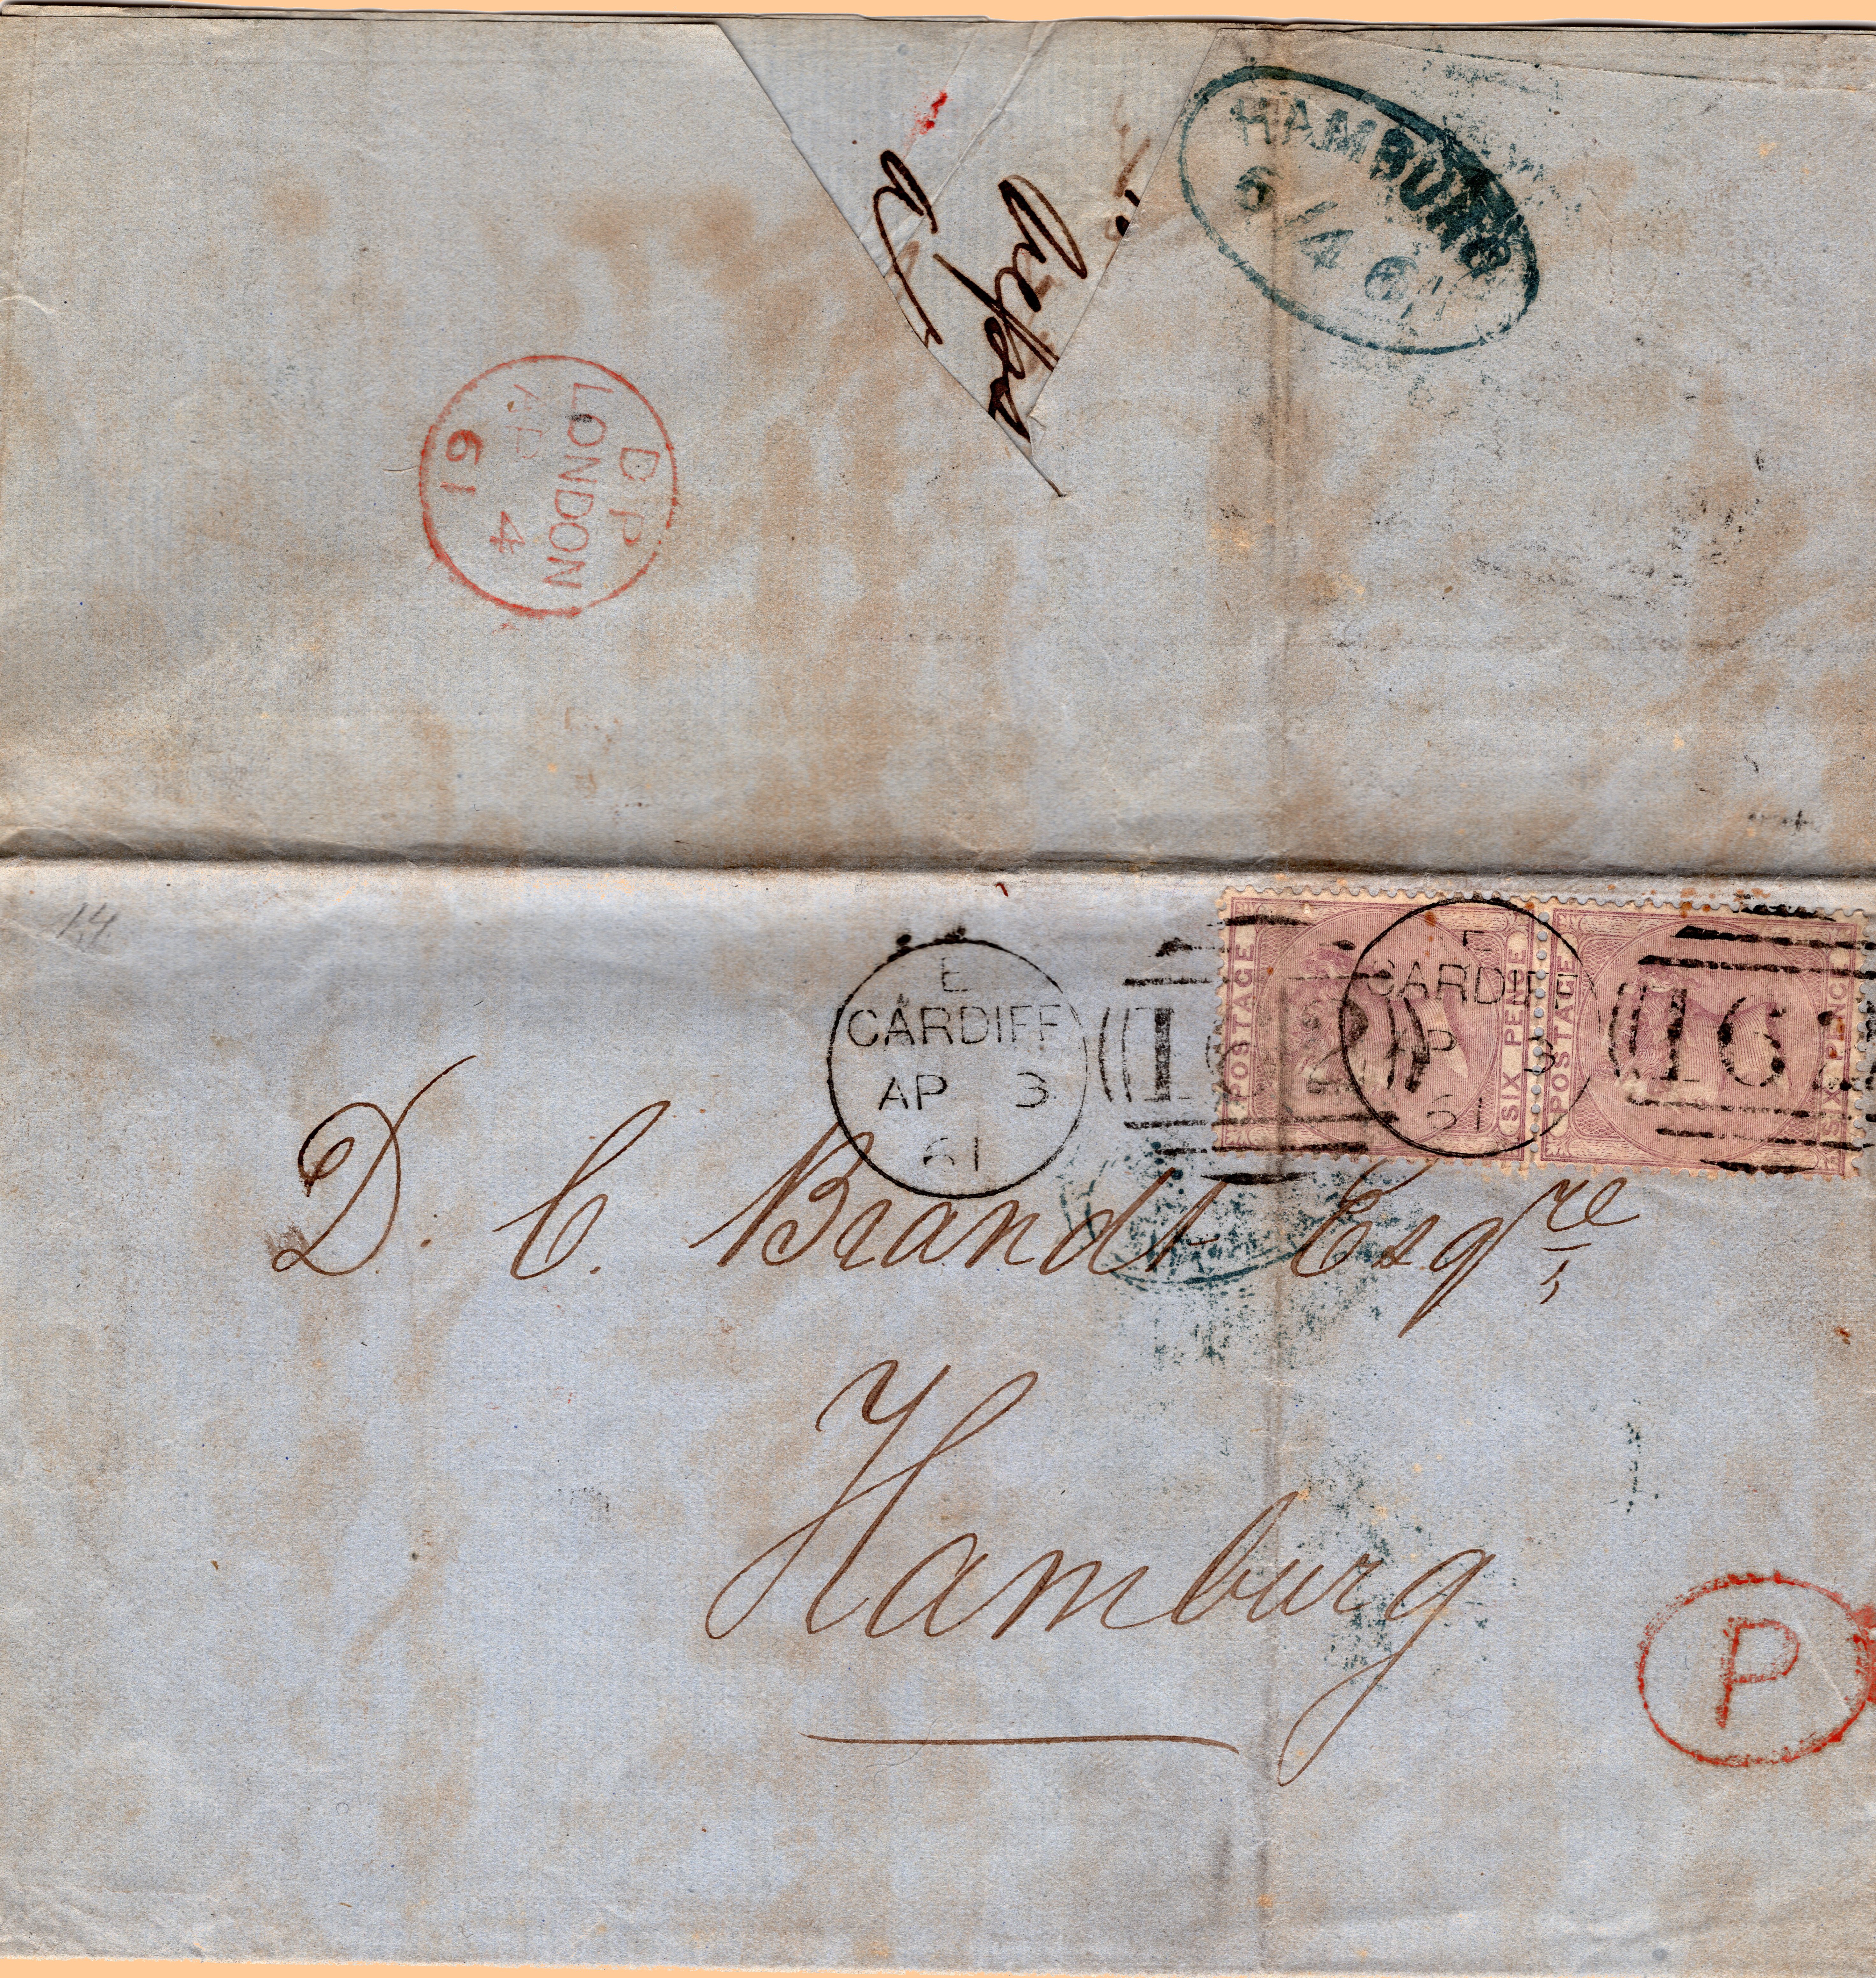 HAMBURG
6/4 61
DP
LONDON
AP 4
61
14
E
CARDIFF
AP 3
61
162
POSTAGE
SIX PENCE
E
CARDIFF
AP 3
61
162
POSTAGE
SIX PENCE
D. C. Brandt Esqre
Hamburg
P